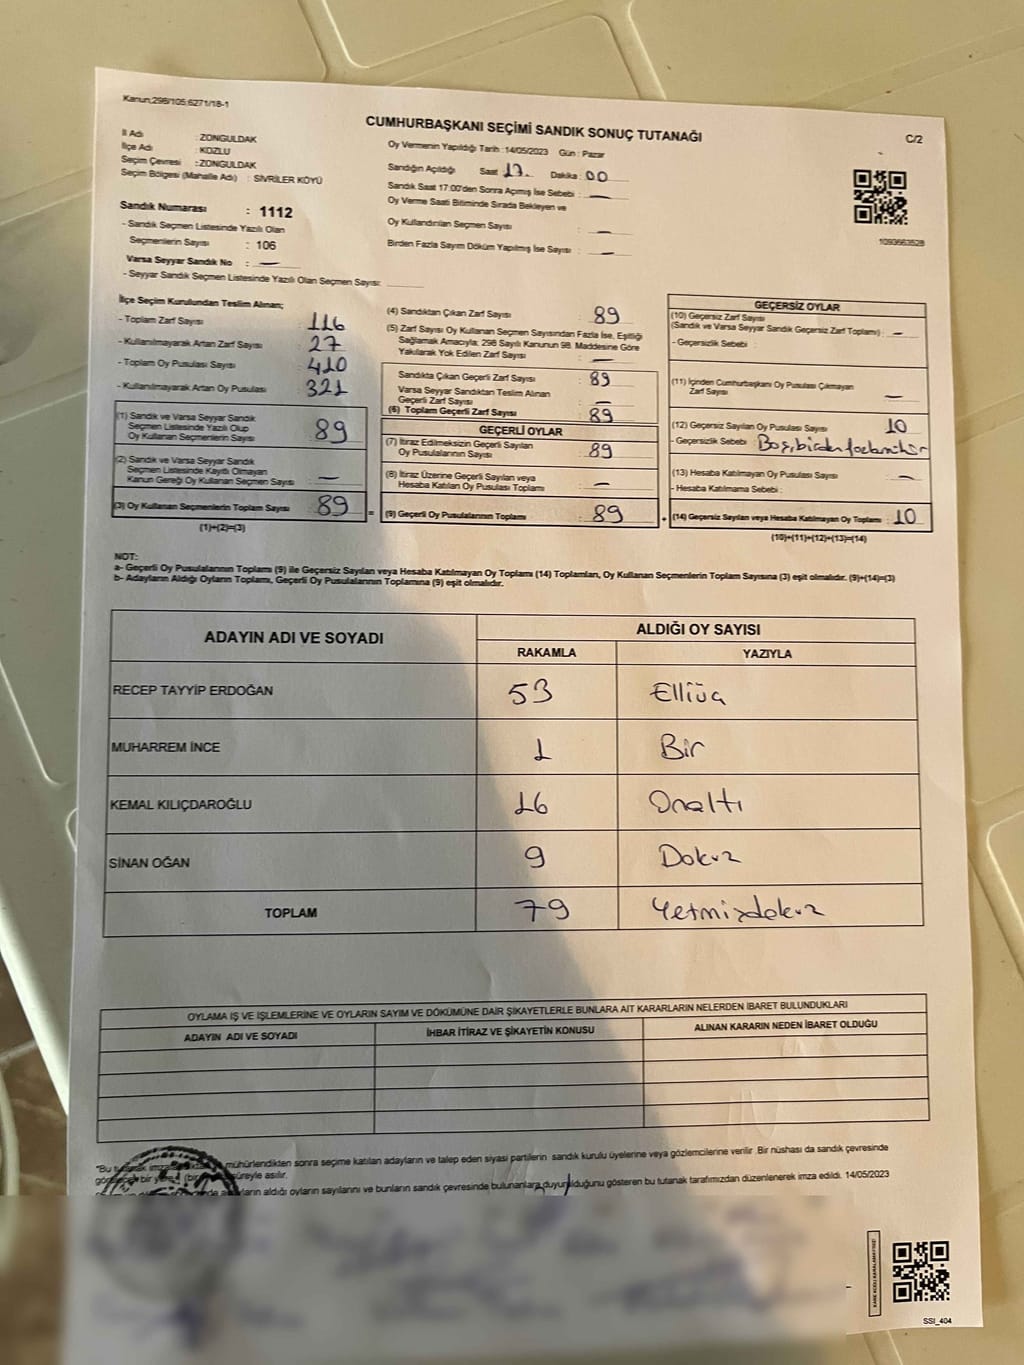 Kanun;298/105;6271/18-1
CUMHURBAŞKANI SEÇİMİ SANDIK SONUÇ TUTANAĞI
C/2
İl Adı : ZONGULDAK
İlçe Adı : KOZLU
Seçim Çevresi : ZONGULDAK
Seçim Bölgesi (Mahalle Adı) : SİVRİLER KÖYÜ
Sandık Numarası : 1112
- Sandık Seçmen Listesinde Yazılı Olan
Seçmenlerin Sayısı : 106
Varsa Seyyar Sandık No : —
- Seyyar Sandık Seçmen Listesinde Yazılı Olan Seçmen Sayısı:
Oy Vermenin Yapıldığı Tarih : 14/05/2023 Gün : Pazar
Sandığın Açıldığı Saat : 17. Dakika : 00
Sandık Saat 17:00'den Sonra Açılmış İse Sebebi : —
Oy Verme Saati Bitiminde Sırada Bekleyen ve
Oy Kullandırılan Seçmen Sayısı : —
Birden Fazla Sayım Döküm Yapılmış İse Sayısı : —
1093663528
İlçe Seçim Kurulundan Teslim Alınan;
- Toplam Zarf Sayısı : 116
- Kullanılmayarak Artan Zarf Sayısı : 27
- Toplam Oy Pusulası Sayısı : 410
- Kullanılmayarak Artan Oy Pusulası : 321
(1) Sandık ve Varsa Seyyar Sandık
Seçmen Listesinde Yazılı Olup
Oy Kullanan Seçmenlerin Sayısı : 89
(2) Sandık ve Varsa Seyyar Sandık
Seçmen Listesinde Kayıtlı Olmayan
Kanun Gereği Oy Kullanan Seçmen Sayısı : —
(3) Oy Kullanan Seçmenlerin Toplam Sayısı : 89
(1)+(2)=(3)
(4) Sandıktan Çıkan Zarf Sayısı : 89
(5) Zarf Sayısı Oy Kullanan Seçmen Sayısından Fazla İse, Eşitliği
Sağlamak Amacıyla; 298 Sayılı Kanunun 98. Maddesine Göre
Yakılarak Yok Edilen Zarf Sayısı : —
Sandıkta Çıkan Geçerli Zarf Sayısı : 89
Varsa Seyyar Sandıktan Teslim Alınan
Geçerli Zarf Sayısı : —
(6) Toplam Geçerli Zarf Sayısı : 89
GEÇERLİ OYLAR
(7) İtiraz Edilmeksizin Geçerli Sayılan
Oy Pusulalarının Sayısı : 89
(8) İtiraz Üzerine Geçerli Sayılan veya
Hesaba Katılan Oy Pusulası Toplamı : —
= (9) Geçerli Oy Pusulalarının Toplamı : 89
GEÇERSİZ OYLAR
(10) Geçersiz Zarf Sayısı
(Sandık ve Varsa Seyyar Sandık Geçersiz Zarf Toplamı) : —
- Geçersizlik Sebebi :
(11) İçinden Cumhurbaşkanı Oy Pusulası Çıkmayan
Zarf Sayısı : —
(12) Geçersiz Sayılan Oy Pusulası Sayısı : 10
- Geçersizlik Sebebi :
(13) Hesaba Katılmayan Oy Pusulası Sayısı : —
- Hesaba Katılmama Sebebi :
+ (14) Geçersiz Sayılan veya Hesaba Katılmayan Oy Toplamı : 10
(10)+(11)+(12)+(13)=(14)
NOT:
a- Geçerli Oy Pusulalarının Toplamı (9) ile Geçersiz Sayılan veya Hesaba Katılmayan Oy Toplamı (14) Toplamları, Oy Kullanan Seçmenlerin Toplam Sayısına (3) eşit olmalıdır. (9)+(14)=(3)
b- Adayların Aldığı Oyların Toplamı, Geçerli Oy Pusulalarının Toplamına (9) eşit olmalıdır.
ADAYIN ADI VE SOYADI
ALDIĞI OY SAYISI
RAKAMLA YAZIYLA
RECEP TAYYİP ERDOĞAN 53 Elliüç
MUHARREM İNCE 1 Bir
KEMAL KILIÇDAROĞLU 16 Onaltı
SİNAN OĞAN 9 Dokuz
TOPLAM 79 Yetmişdokuz
OYLAMA İŞ VE İŞLEMLERİNE VE OYLARIN SAYIM VE DÖKÜMÜNE DAİR ŞİKAYETLERLE BUNLARA AİT KARARLARIN NELERDEN İBARET BULUNDUKLARI
ADAYIN ADI VE SOYADI İHBAR İTİRAZ VE ŞİKAYETİN KONUSU ALINAN KARARIN NEDEN İBARET OLDUĞU
"Bu tutanak mühürlendikten sonra seçime katılan adayların ve talep eden siyasi partilerin sandık kurulu üyelerine veya gözlemcilerine verilir. Bir nüshası da sandık çevresinde
bir yere (bir süreyle asılır.
aldığı oyların sayılarını ve bunların sandık çevresinde bulunanlara duyurulduğunu gösteren bu tutanak tarafımızdan düzenlenerek imza edildi. 14/05/2023
KARE KODU KARALAMAYINIZ!
SSI_404